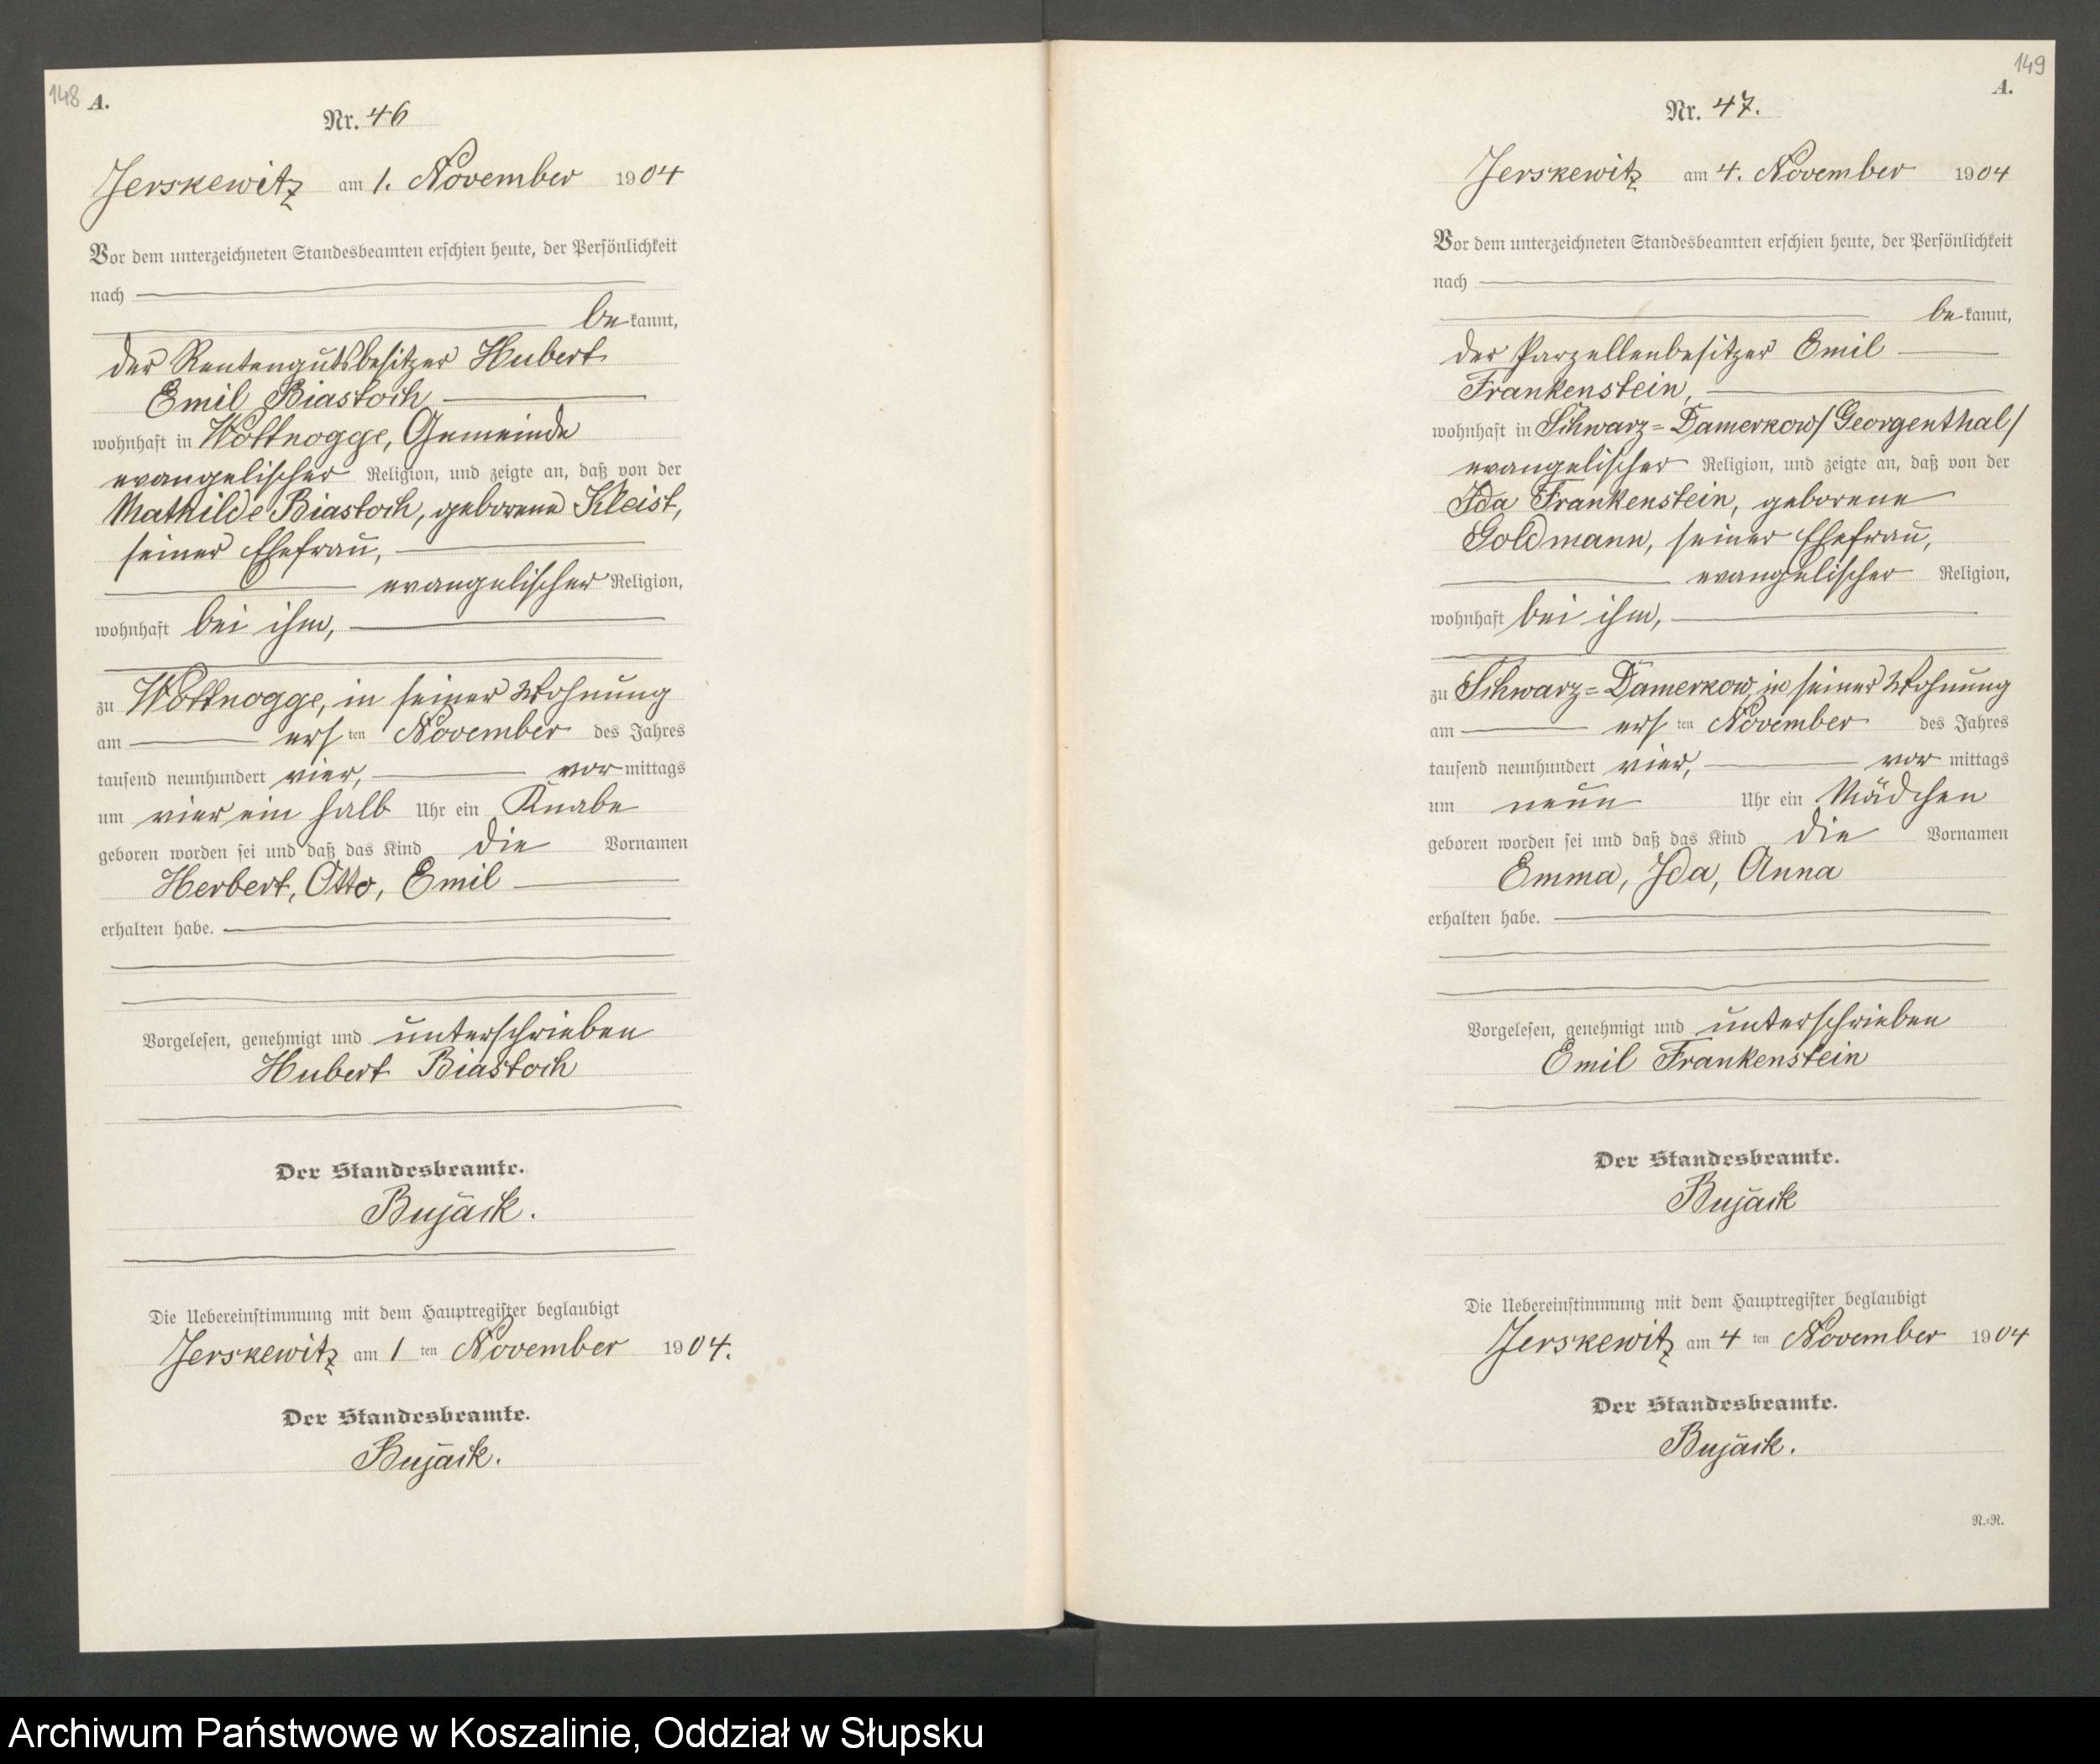 148 A.
Nr. 46
Jerskewitz am 1. November 1904
Vor dem unterzeichneten Standesbeamten erschien heute, der Persönlichkeit
nach
be kannt,
der Rentengutsbesitzer Hubert
Emil Biastoch
wohnhaft in Wottnogge, Gemeinde
evangelischer Religion, und zeigte an, daß von der
Mathilde Biastoch, geborene Kleist,
seiner Ehefrau,
evangelischer Religion,
wohnhaft bei ihm,
zu Wottnogge, in seiner Wohnung
am ersten November des Jahres
tausend neunhundert vier, vor mittags
um vier ein halb Uhr ein Knabe
geboren worden sei und daß das Kind die Vornamen
Herbert, Otto, Emil
erhalten habe.
Vorgelesen, genehmigt und unterschrieben
Hubert Biastoch
Der Standesbeamte.
Bujack.
Die Uebereinstimmung mit dem Hauptregister beglaubigt
Jerskewitz am 1 ten November 1904.
Der Standesbeamte.
Bujack.
149
A.
Nr. 47.
Jerskewitz am 4. November 1904
Vor dem unterzeichneten Standesbeamten erschien heute, der Persönlichkeit
nach
be kannt,
der Parzellenbesitzer Emil
Frankenstein,
wohnhaft in Schwarz=Damerkow/Georgenthal/
evangelischer Religion, und zeigte an, daß von der
Ida Frankenstein, geborene
Goldmann, seiner Ehefrau,
evangelischer Religion,
wohnhaft bei ihm,
zu Schwarz=Damerkow, in seiner Wohnung
am ersten November des Jahres
tausend neunhundert vier, vor mittags
um neun Uhr ein Mädchen
geboren worden sei und daß das Kind die Vornamen
Emma, Ida, Anna
erhalten habe.
Vorgelesen, genehmigt und unterschrieben
Emil Frankenstein
Der Standesbeamte.
Bujack
Die Uebereinstimmung mit dem Hauptregister beglaubigt
Jerskewitz am 4 ten November 1904
Der Standesbeamte.
Bujack.
R.=R.
Archiwum Państwowe w Koszalinie, Oddział w Słupsku